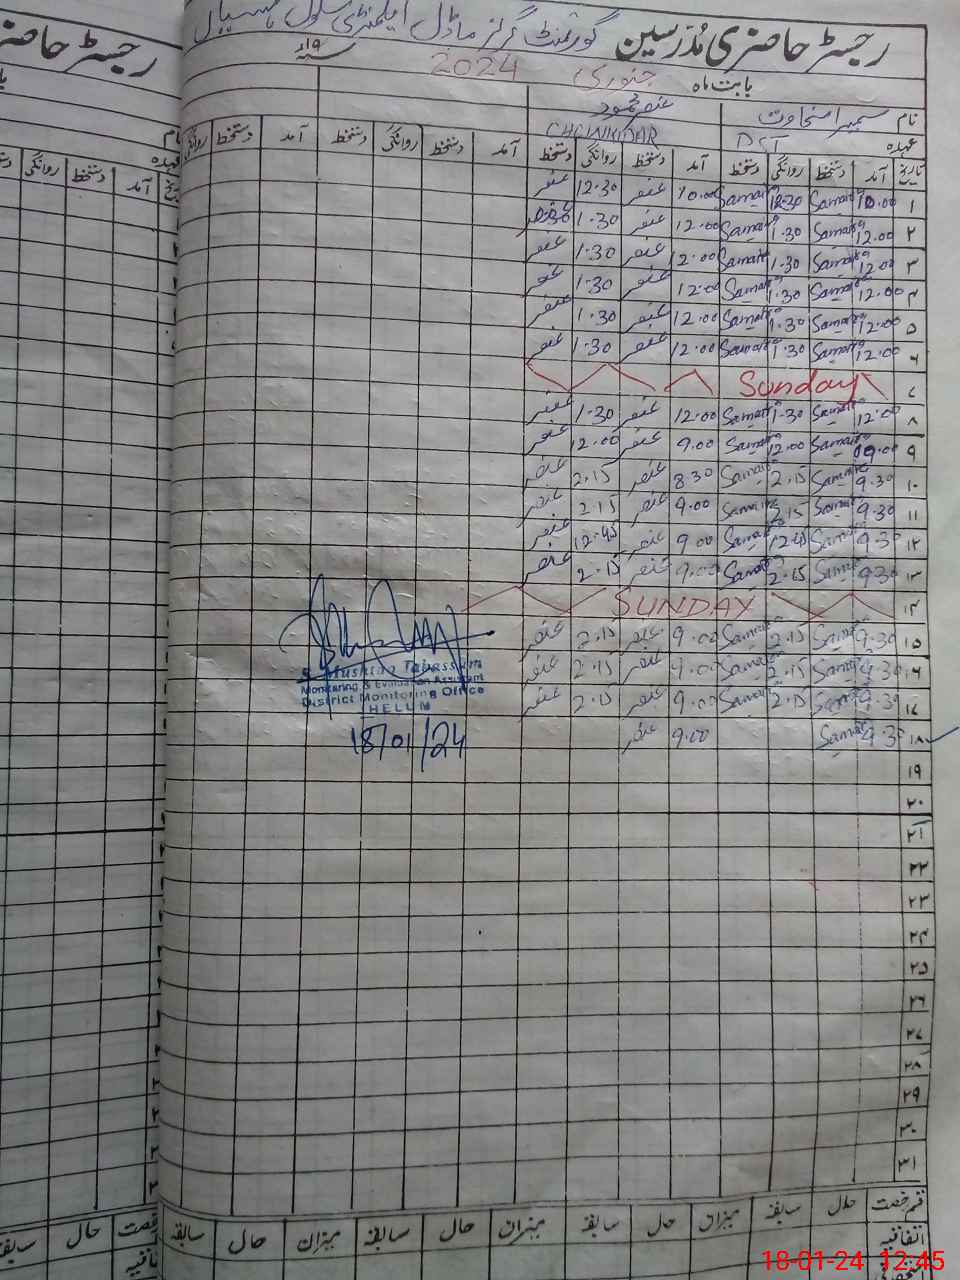 رجسٹر حاضری مدرسین گورنمنٹ گرلز ماڈل ایلیمنٹری سکول
بابت ماہ جنوری 2024 سنہ ۱۹ء
نام عنصر محمود
عہدہ DST CHOWKIDAR
تاریخ آمد دستخط روانگی دستخط آمد دستخط روانگی دستخط آمد دستخط روانگی دستخط آمد دستخط روانگی
۱ 10.00 Samar 12.30 Samar 10.00 عنصر 12.30 عنصر
۲ 12.00 Samar 1.30 Samar 12.00 عنصر 1.30
۳ 12.00 Samar 1.30 Samar 12.00 عنصر 1.30 عنصر
۴ 12.00 Samar 1.30 Samar 12.00 عنصر 1.30 عنصر
۵ 12.00 Samar 1.30 Samar 12.00 عنصر 1.30 عنصر
۶ 12.00 Samar 1.30 Samar 12.00 عنصر 1.30 عنصر
۷ Sunday
۸ 12.00 Samar 1.30 Samar 12.00 عنصر 1.30 عنصر
۹ 09.00 Samar 12.00 Samar 9.00 عنصر 12.00 عنصر
۱۰ 9.30 Samar 2.15 Samar 8.30 عنصر 2.15 عنصر
۱۱ 9.30 Samar 2.15 Samar 9.00 عنصر 2.15 عنصر
۱۲ 9.30 Samar 12.45 Samar 9.00 عنصر 12.45 عنصر
۱۳ 9.30 Samar 2.15 Samar 9.00 عنصر 2.15 عنصر
۱۴ SUNDAY
۱۵ 9.30 Samar 2.15 Samar 9.00 عنصر 2.15 عنصر
۱۶ 9.30 Samar 2.15 Samar 9.00 عنصر 2.15 عنصر
۱۷ 9.30 Samar 2.15 Samar 9.00 عنصر 2.15 عنصر
۱۸ 9.30 Samar 9.00 عنصر
Mushtaq Tabassum
Monitoring & Evaluation Assistant
District Monitoring Office
JHELUM
18/01/24
۱۹
۲۰
۲۱
۲۲
۲۳
۲۴
۲۵
۲۶
۲۷
۲۸
۲۹
۳۰
۳۱
قسم رخصت حال سابقہ میزان حال سابقہ میزان حال سابقہ میزان حال سابقہ
اتفاقیہ
18-01-24 12:45